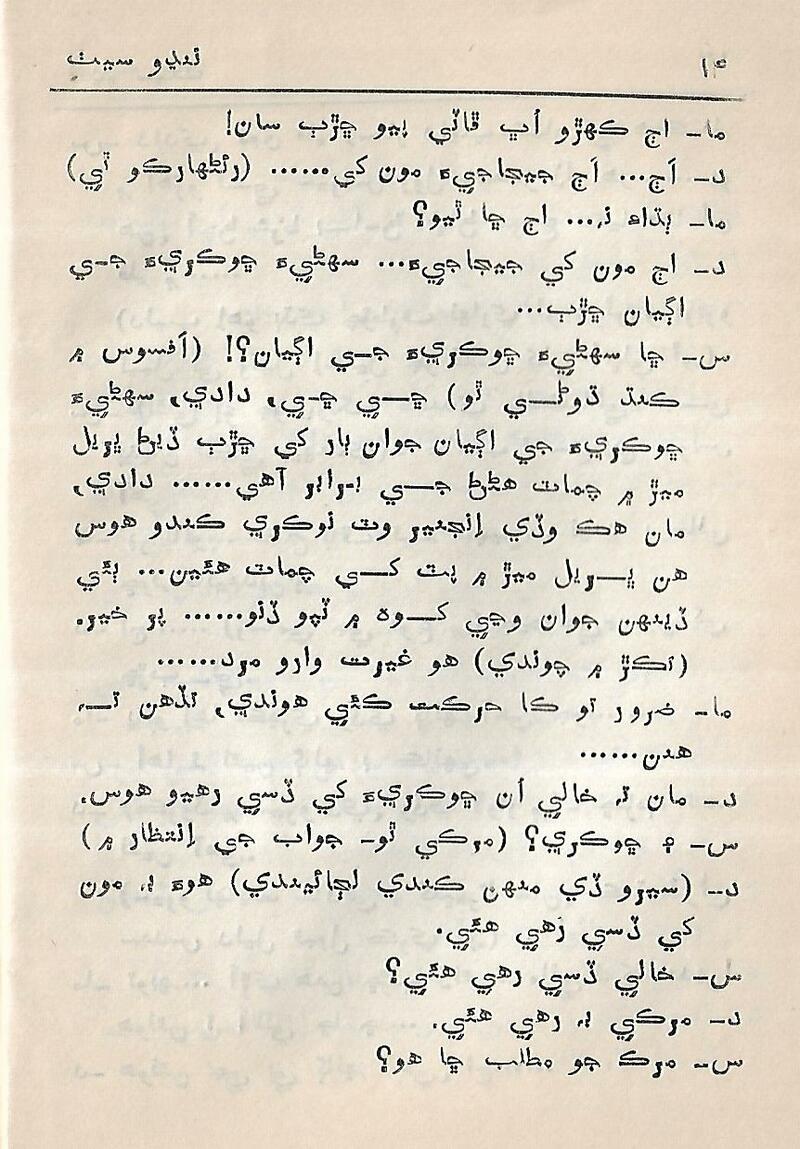 ۱۴ ننڍو سيٺ
ما- اڄ ڪهڙو اُڀ ڦاٽي پيو ڇڙٻ سان!
د- اَڄ... اَڄ جيجاجيءَ مون کي...... (رئڻهارڪو ٿي)
ما- ٻڌاءِ نہ... اڄ ڇا ٿيو؟
د- اڄ مون کي جيجاجيءَ... سهڻيءَ ڇوڪريءَ جي
اڳيان ڇڙٻ...
س- ڇا سهڻيءَ ڇوڪريءَ جي اڳيان؟! (اَفسوس ۾
ڪنڌ ڌوڻي ٿو) ڇي ڇي، دادي، سهڻيءَ
ڇوڪريءَ جي اڳيان جوان ٻار کي ڇڙٻ ڏيڻ ڀريل
ميڙ ۾ چماٽ هڻڻ جي برابر آهي...... دادي،
مان هڪ وڏي اِنجنير وٽ نوڪري ڪندو هوس
هن ڀريل ميڙ ۾ پٽ کي چماٽ هنئين... ٻئي
ڏينهن جوان وڃي کوهہ ۾ ٽپو ڏنو...... پر خير.
(اَڪڙ ۾ چوندي) هو غيرت وارو مرد......
ما- ضرور تو ڪا حرڪت ڪئي هوندي، تڏهن تہ
هنن......
د- مان تہ خالي اُن ڇوڪريءَ کي ڏسي رهيو هوس.
س- ۽ ڇوڪري؟ (مرڪي ٿو- جواب جي اِنتظار ۾)
د- (سيرو ڏي منهن ڪندي لڄائيندي) هوءَ بہ مون
کي ڏسي رهي هئي.
س- خالي ڏسي رهي هئي؟
د- مرڪي بہ رهي هئي.
س- مرڪ جو مطلب ڇا هو؟